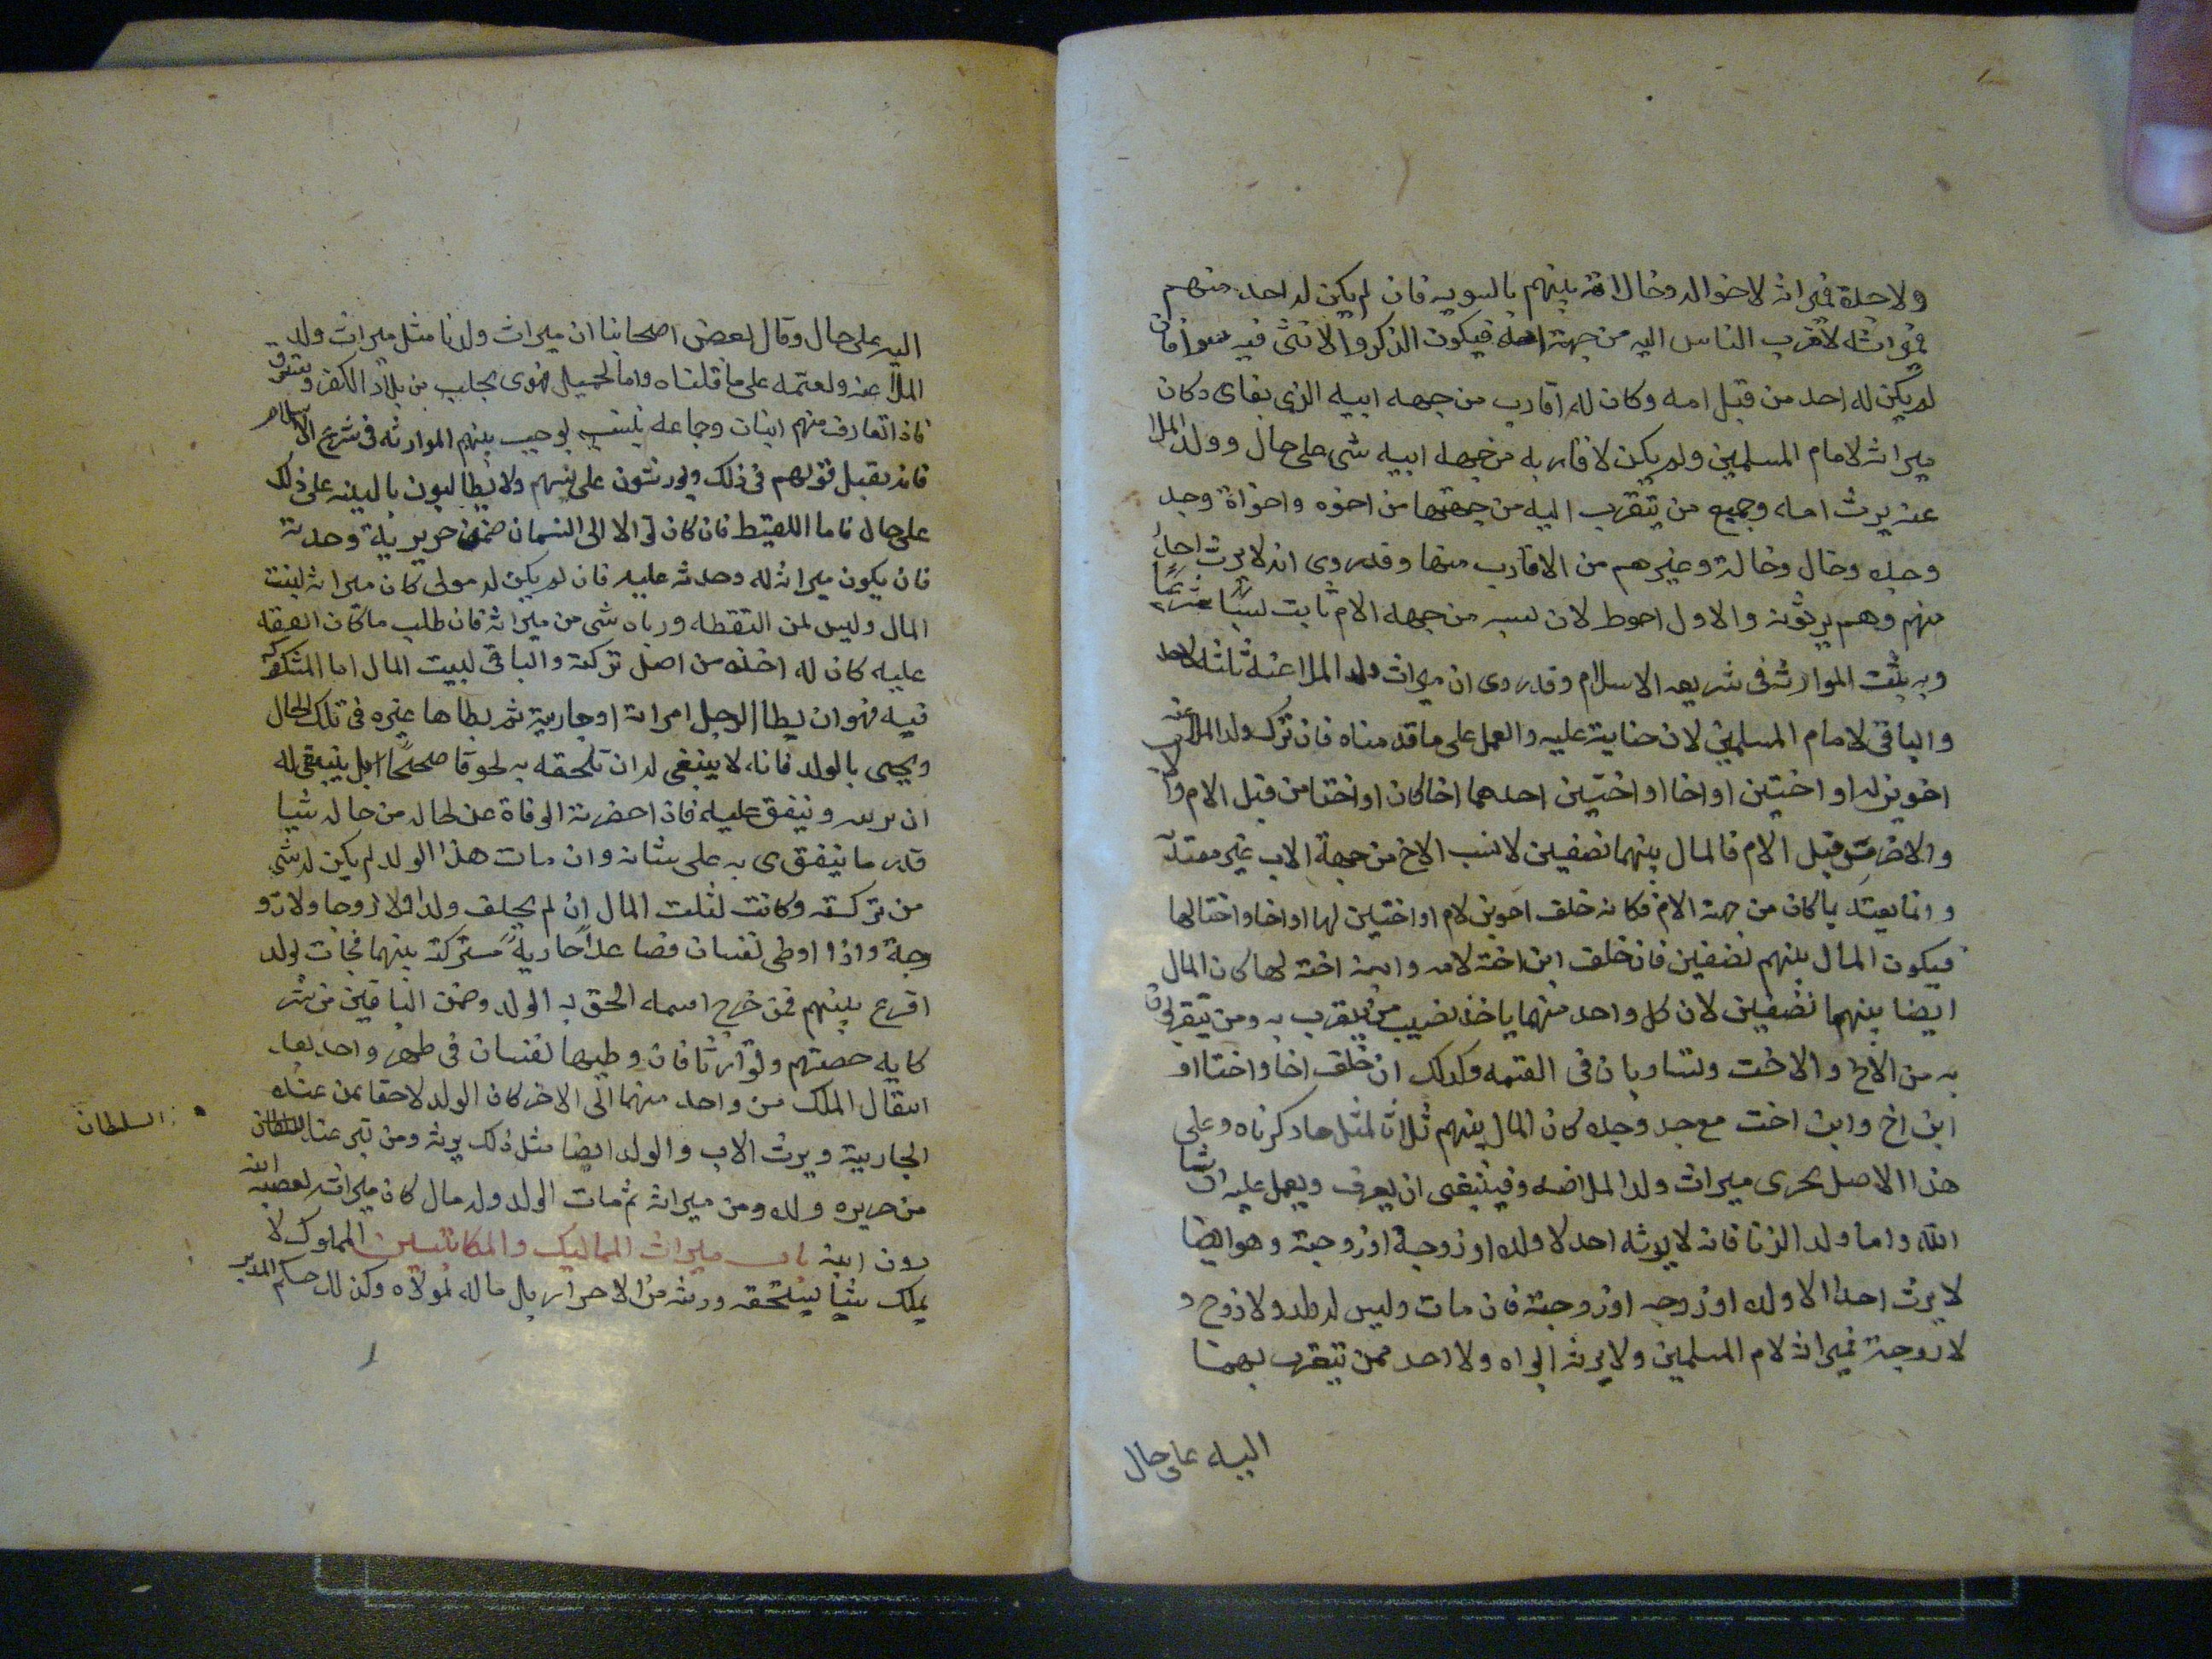 ولا جدة فميراثه لاخواله وخالاته بينهم بالسويه فان لم يكن له احد منهم
فميراثه لاقرب الناس اليه من جهة امه فيكون الذكر والانثى فيه سوا فان
لم يكن له احد من قبل امه وكان له اقارب من جهه ابيه الذي نفاه كان
ميراثه لامام المسلمين ولم يكن لاقاربه من جهه ابيه شي على حال وولد الملا
عنه يرث امه وجميع من يتقرب اليه من جهتها من اخوه واخواة وجد
وجده وخال وخالة وغيرهم من الاقارب منها وقد روى انه لا يرث احدا
منهم وهم يرثونه والاول احوط لان نسبه من جهه الام ثابت نسبا شرعيا
وبه يثبت الموارثه في شريعه الاسلام وقد روى ان ميراث ولد الملاعنه ثلثه لامه
والباقي لامام المسلمين لان جنايته عليه والعمل على ما قدمناه فان ترك ولد الملاعنه
اخوين له او اختين او اخا او اختين احدهما اخا كان او اختا من قبل الاب والام
والاخر من قبل الام فالمال بينهما نصفين لا نسب الاخ من جهة الاب غير معتد
وانما يعتد بما كان من جهة الام فكانه خلف اخوين لام او اختين لها او اخا واختا لها
فيكون المال بينهم نصفين فان خلف ابن اخته لامه وابنة اخته لها كان المال
ايضا بينهما نصفين لان كل واحد منهما ياخذ نصيب من يتقرب به ومن يتقربان
به من الاخ والاخت ويتساويان في القسمه وكذلك ان خلف اخا واختا او
ابن اخ وابن اخت مع جد وجده كان المال بينهم ثلاثا لمثل ما ذكرناه وعلى
هذا الاصل يجرى ميراث ولد الملاعنه فينبغى ان يعرف ويعمل عليه ان شا
الله واما ولد الزنا فانه لا يورثه احد لا ولده او زوجه او زوجته وهو ايضا
لا يرث احدا الا ولده او زوجه او زوجته فان مات وليس له ولد ولا زوج و
لا زوجة فميراثه لام المسلمين ولا يرثه ابواه ولا احد ممن يتقرب بهما
اليه على حال
اليه على حال وقال بعض اصحابنا ان ميراث ولد زنا مثل ميراث ولد
الملاعنه ولعتمد على ما قلناه واما الحميل فهو ى يجلب من بلاد الكفر ويسترق
فاذا تعارف منهم اثنان وجماعه بنسب يوجب بينهم الموارثه في شرع الاسلام
فانه يقبل قولهم في ذلك ويورثون على نسبهم ولا يطالبون بالبينه على ذلك
على حال فاما اللقيط فان كان توالا الى انسان ضمن جريريته وحدثه
فان يكون ميراثه له وحدثه عليه فان لم يكن له مولى كان ميراثه لبيت
المال وليس لمن التقطه ورباه شى من ميراثه فان طلب ما كان انفقه
عليه كان له اخذه من اصل تركته والباقى لبيت المال اما المشكوك
فيه فهو ان يطا الرجل امراته او جاريته ثم يطاها غيره في تلك الحال
ويجى بالولد فانه لا ينبغى له ان تلحقه به لحوقا صحيحا بل ينبغى له
ان يربيه وينفق عليه فاذا حضرته الوفاة عزل له من ماله شيا
قدر ما يتفقوى به على شانه وان مات هذا الولد لم يكن له شى
من تركته وكانت لثلث المال ان لم يخلف ولدا ولا زوجا ولا زو
وجة واذا اوطى نفسان فصاعدا جارية مشتركة بينهما فجات لولد
اقرع بينهم فمن خرج اسمه الحق به الولد وضمن الباقين من شر
كايه حصتهم وتوارثا فان وطيها نفسان في طهر واحد بعد
انتقال الملك من واحد منهما الى الاخر كان الولد لاحقا بمن عنده
الجارية ويرث الاب والولد ايضا مثل ذلك يرثه ومن تبرء عند السلطان
من جريره ولده ومن ميراثه ثم مات الولد وله مال كان ميراثه لعصبه ابيه
دون ابيه باب ميراث المماليك والمكاتبين المملوك لا
يملك شيا يستحقه ورثه من الاحرار بل ماله لمولاه وكذلك حكم المدبر
السلطان